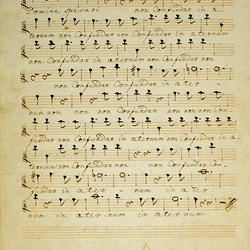 Domine speravi non confundar in a
ternum non confundar non confundar in aternum
non confundar in aternum non confundar
non confundar confundar in ater
num non non non non con
fundar non confundar in aternum non confundar in a
ternum non confundar non non confundar con
fundar in ater num in ater
num in ater num in aternum